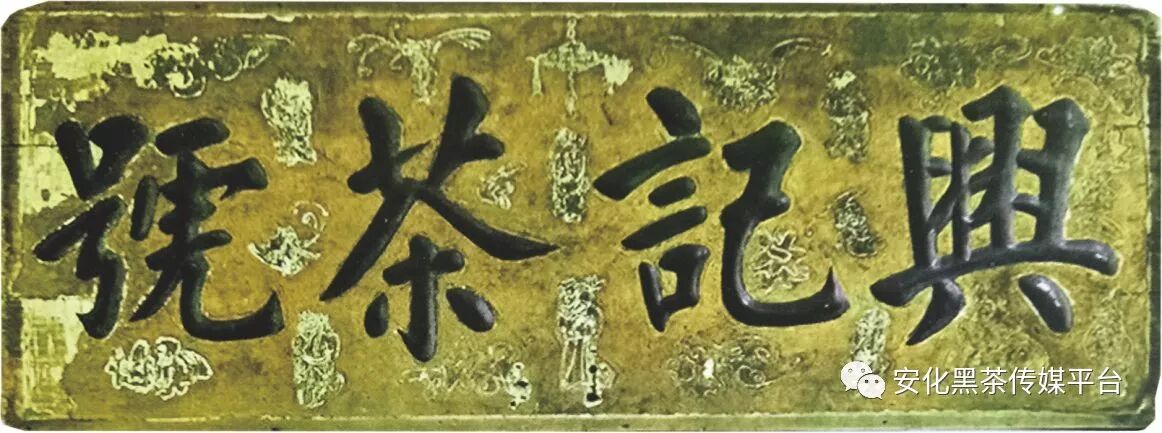 興記茶號
安化黑茶传媒平台